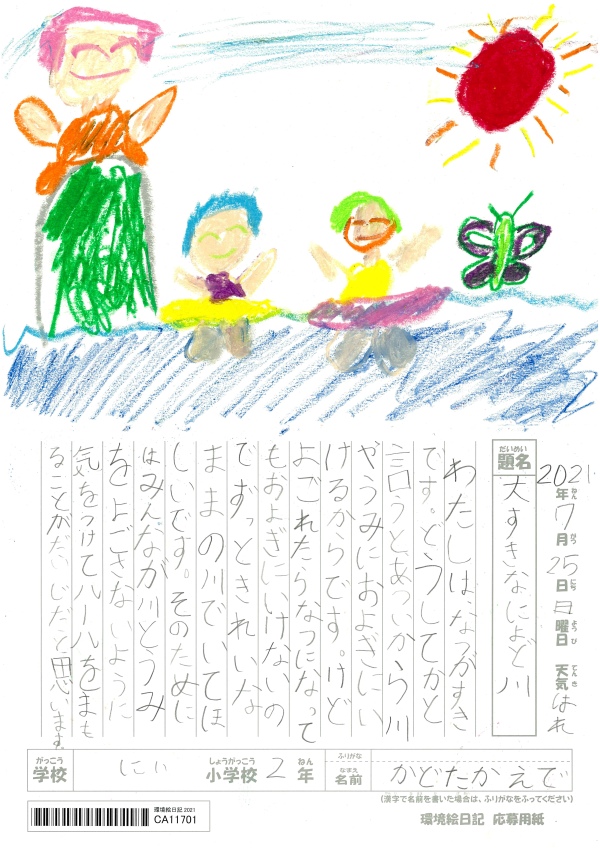 2021年7月25日日曜日 天気はれ
ねん がつ にち ようび てんき
だいめい
題名 大すきなによど川
わたしは、なつがすき
です。どうしてかと
言うとあついから川
やうみにおよぎにい
けるからです。けど
よごれたらなつになって
もおよぎにいけないの
でずっときれいな
ままの川でいてほ
しいです。そのために
はみんなが川とうみ
をよごさないように
気をつけてルールをまも
ることがだいじだと思います。
がっこう しょうがっこう ねん ふりがな
学校 にい 小学校 2年
なまえ
名前 かどたかえで
(漢字で名前を書いた場合は、ふりがなをふってください)
環境絵日記2021
CA11701
環境絵日記 応募用紙